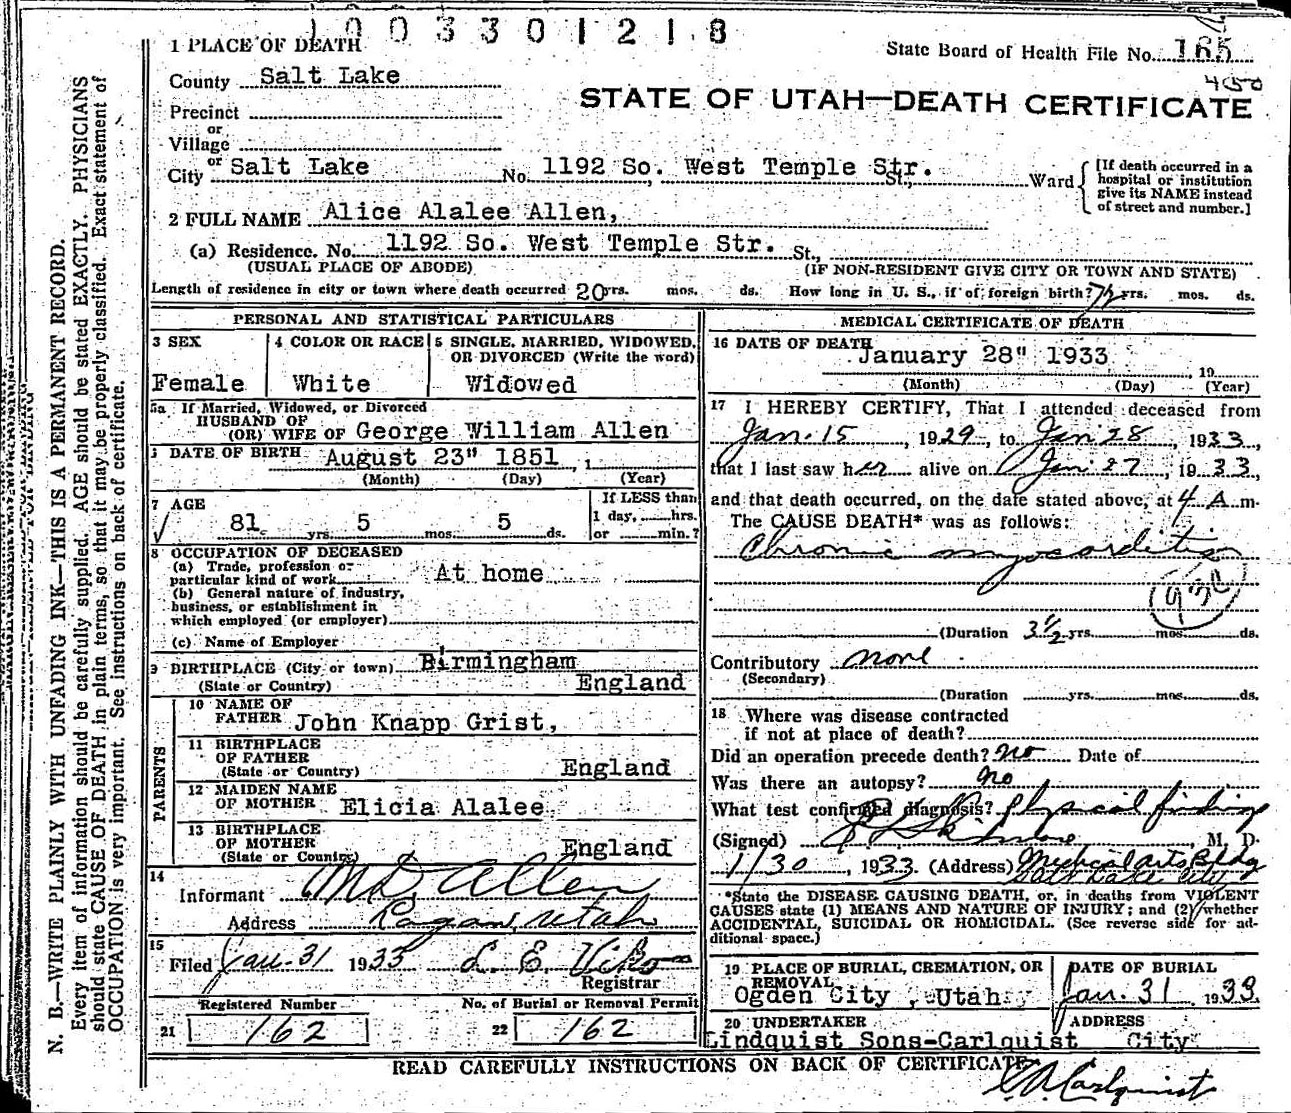 1003301218
1 PLACE OF DEATH
State Board of Health File No. 165
County Salt Lake
450
STATE OF UTAH—DEATH CERTIFICATE
Precinct
or
Village
or
City Salt Lake No. 1192 So. West Temple Str. St., Ward
[If death occurred in a hospital or institution give its NAME instead of street and number.]
2 FULL NAME Alice Alalee Allen,
(a) Residence. No. 1192 So. West Temple Str. St.,
(USUAL PLACE OF ABODE) (IF NON-RESIDENT GIVE CITY OR TOWN AND STATE)
Length of residence in city or town where death occurred 20 yrs. mos. ds. How long in U. S., if of foreign birth? 72 yrs. mos. ds.
PERSONAL AND STATISTICAL PARTICULARS
3 SEX 4 COLOR OR RACE 5 SINGLE, MARRIED, WIDOWED,
OR DIVORCED (Write the word)
Female White Widowed
5a If Married, Widowed, or Divorced
HUSBAND OF
(OR) WIFE OF George William Allen
DATE OF BIRTH August 23" 1851, 1
(Month) (Day) (Year)
7 AGE If LESS than
81 yrs. 5 mos. 5 ds. 1 day, hrs.
or min.?
8 OCCUPATION OF DECEASED
(a) Trade, profession or
particular kind of work At home
(b) General nature of industry,
business, or establishment in
which employed (or employer)
(c) Name of Employer
9 BIRTHPLACE (City or town) Birmingham
(State or Country) England
PARENTS
10 NAME OF
FATHER John Knapp Grist,
11 BIRTHPLACE
OF FATHER
(State or Country) England
12 MAIDEN NAME
OF MOTHER Elicia Alalee
13 BIRTHPLACE
OF MOTHER
(State or Country) England
14
Informant M D Allen
Address Utah
15
Filed Jan. 31 1933 L. E. Viko
Registrar
Registered Number No. of Burial or Removal Permit
21 162 22 162
MEDICAL CERTIFICATE OF DEATH
16 DATE OF DEATH January 28" 1933
, 19
(Month) (Day) (Year)
17 I HEREBY CERTIFY, That I attended deceased from
Jan. 15, 1929, to Jan 28, 1933,
that I last saw her alive on Jan 27, 1933,
and that death occurred, on the date stated above, at 4 A m.
The CAUSE DEATH* was as follows:
Chronic myocarditis
93c
(Duration 3 1/2 yrs. mos. ds.
Contributory none.
(Secondary)
(Duration yrs. mos. ds.
18 Where was disease contracted
if not at place of death?
Did an operation precede death? no Date of
Was there an autopsy? no
What test confirmed diagnosis? physical findings
(Signed) M. D.
1/30, 1933 (Address) Medical Arts Bldg
Salt Lake City
*State the DISEASE CAUSING DEATH, or, in deaths from VIOLENT
CAUSES state (1) MEANS AND NATURE OF INJURY; and (2) whether
ACCIDENTAL, SUICIDAL OR HOMICIDAL. (See reverse side for ad-
ditional space.)
19 PLACE OF BURIAL, CREMATION, OR DATE OF BURIAL
REMOVAL
Ogden City, Utah Jan. 31, 1933
20 UNDERTAKER ADDRESS
Lindquist Sons-Carlquist City
READ CAREFULLY INSTRUCTIONS ON BACK OF CERTIFICATE
C A Carlquist
N. B.—WRITE PLAINLY WITH UNFADING INK—THIS IS A PERMANENT RECORD.
Every item of information should be carefully supplied. AGE should be stated EXACTLY. PHYSICIANS
should state CAUSE OF DEATH in plain terms, so that it may be properly classified. Exact statement of
OCCUPATION is very important. See instructions on back of certificate.